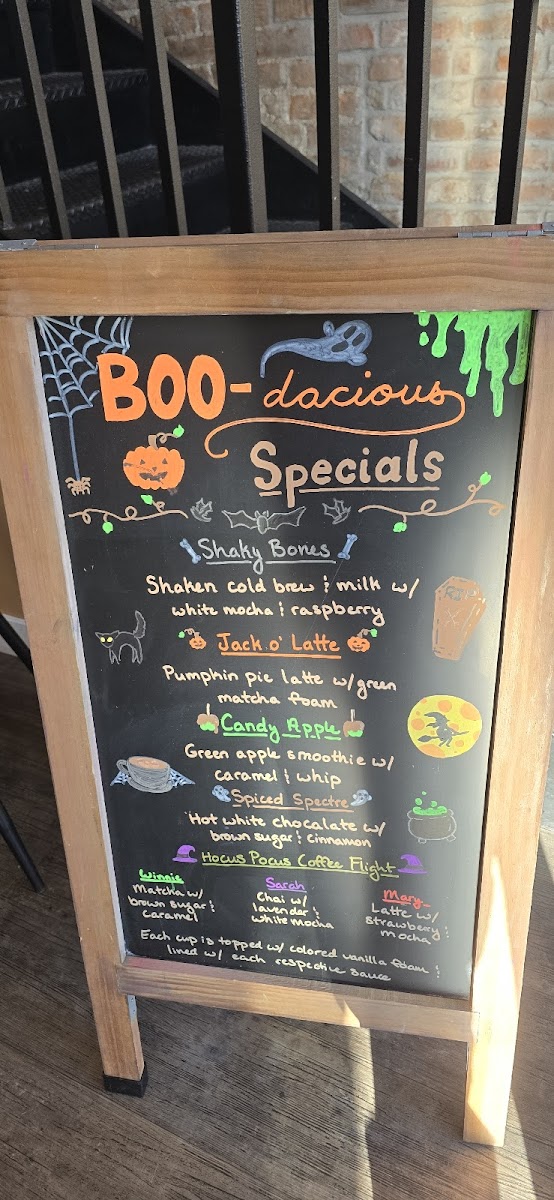 BOO-dacious
Specials
Shaky Bones
Shaken cold brew & milk w/
white mocha & raspberry
RIP
Jack o' Latte
Pumpkin pie latte w/green
matcha foam
Candy Apple
Green apple smoothie w/
caramel & whip
Spiced Spectre
Hot white chocolate w/
brown sugar & cinnamon
Hocus Pocus Coffee Flight
Winnie
Matcha w/
brown sugar &
caramel
Sarah
Chai w/
lavender &
white mocha
Mary
Latte w/
strawberry &
mocha
Each cup is topped w/ colored vanilla foam &
lined w/ each respective sauce